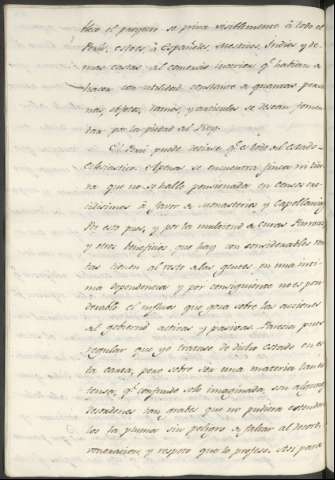 tico el proyecto se priva visiblemente à todo el
Perú, estoes, à Españoles, Mestizos, Indios y de-
mas castas al comercio interior, qᵉ habian de
hacer con utilidad constante à quantas perso-
nas, objetos, ramos, y articulos se desean fomen-
tar por la piedad del Rey.
El Perú puede decirse qᵉ es todo del estado
Eclesiastico. Apenas se encuentra finca ni tier-
ra que no se halle pensionada en censos cre-
cidisimos à favor de Monasterios y Capellanias
Por esto pues, y por la multitud de Curas Parrocos
y otros beneficios que hay con considerables ren-
tas tienen al resto de las gentes en una inti-
ma dependencia y por consiguiente no es pon-
derable el influxo que goza sobre las acciones
del gobierno activas y pasivas. Parecia pues
regular que yo tratase de dicho estado en es-
ta causa, pero sobre ser una materia tan ex-
tensa, qᵉ confundo solo imaginada, son algunos
desordenes tan graves que no pudiera estender-
los la pluma sin peligro de faltar al decoro,
veneracion, y respeto que le profeso. Asi para